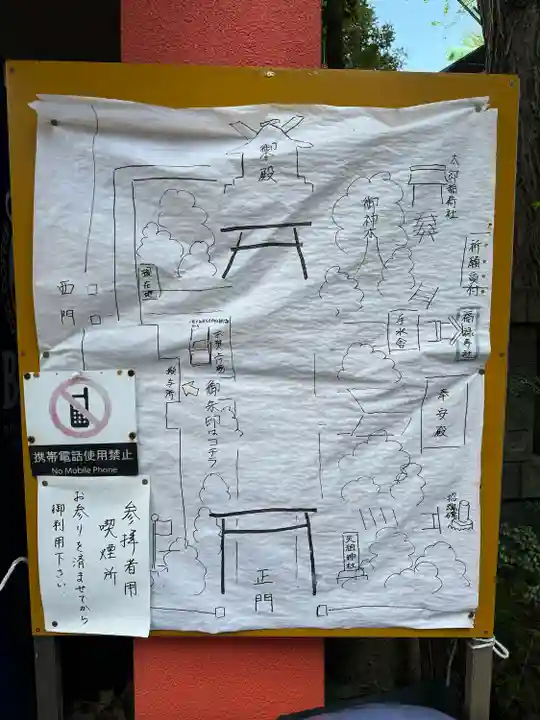 御殿
太郎稲荷社
御神木
祈願受付
現在地
西門
手水舎
授与所
御朱印はコチラ
奉安殿
天祖神社
正門
携帯電話使用禁止
No Mobile Phone
参拝者用
喫煙所
お参りを済ませてから
御利用下さい